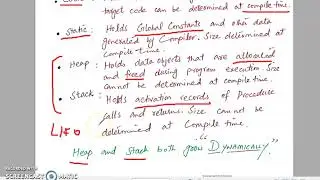 target code can be determined at compile time.
• Static: Holds Global Constants and other data
generated by Compiler. Size determined at
compile time.
• Heap: Holds data objects that are allocated
and freed during program execution. Size
cannot be determined at compile time.
• Stack: Holds activation records of Procedure
calls and returns. Size cannot be
determined at Compile time.
LIFO
Heap and Stack both grow "DYNAMICALLY".
RECORDED WITH
SCREENCAST-O-MATIC